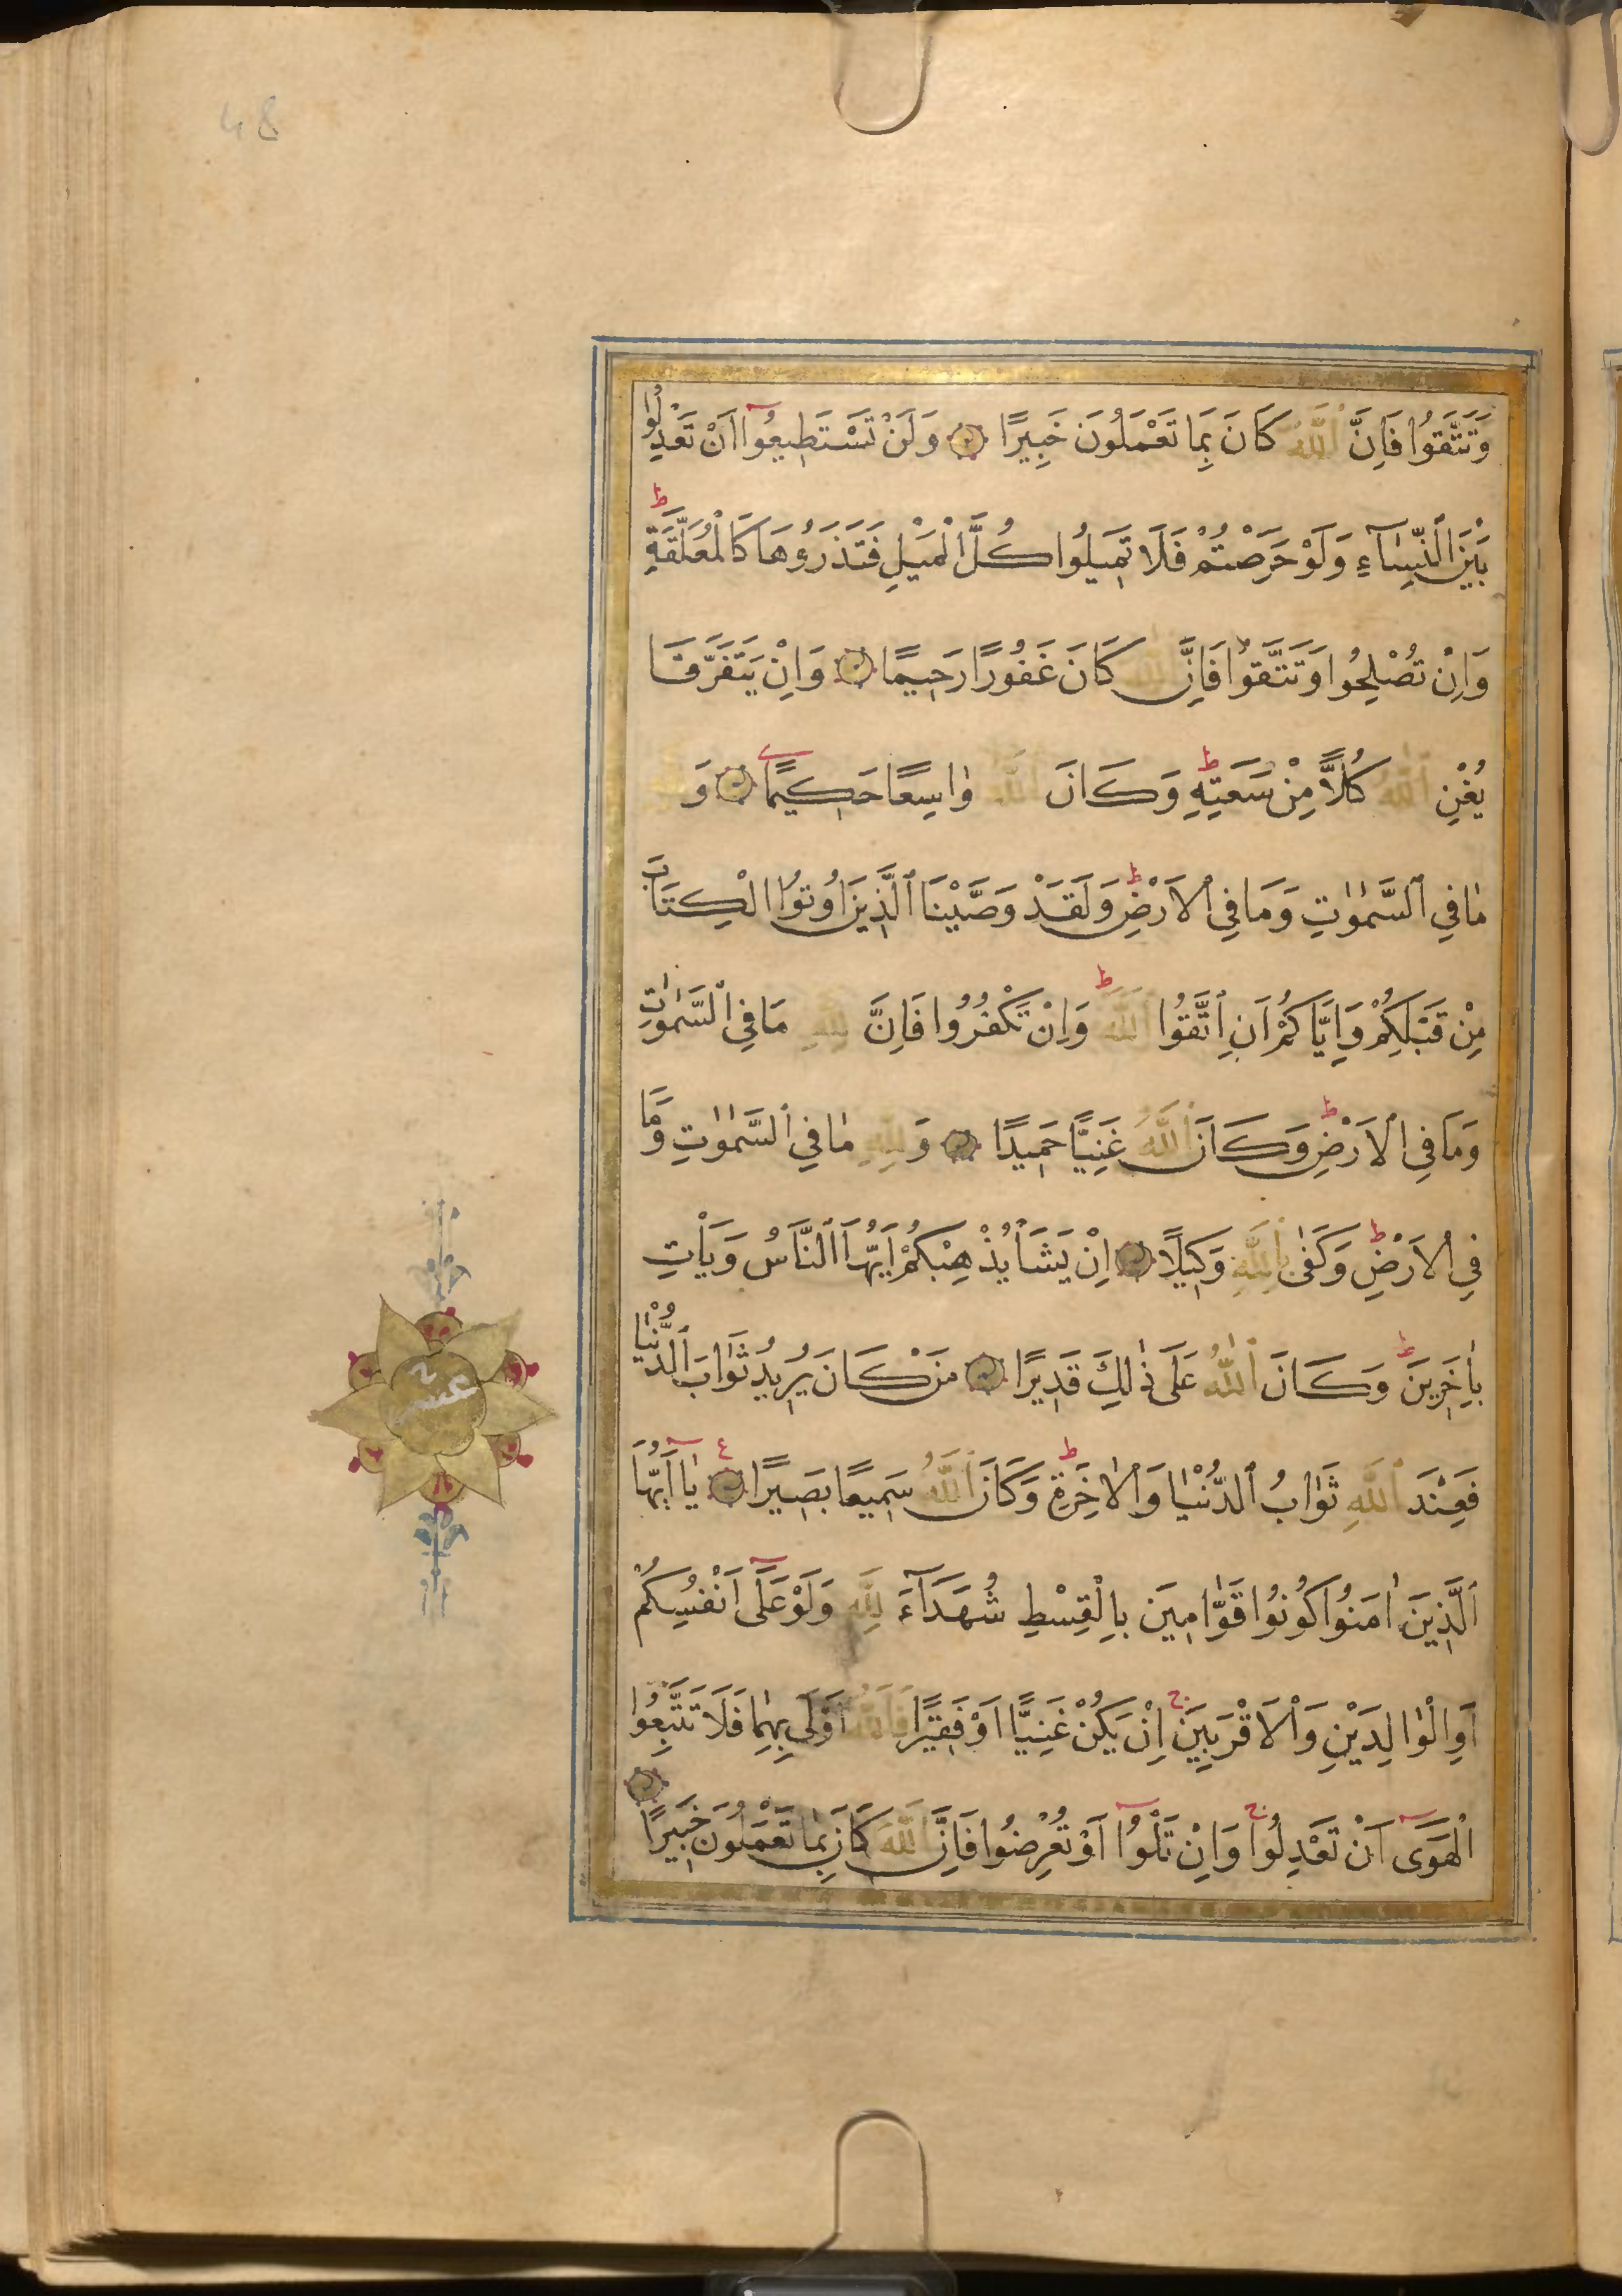 48
وَتَتَّقُوا فَاِنَّ ٱللَّهَ كَانَ بِمَا تَعْمَلُونَ خَبِيرًا وَلَنْ تَسْتَطِيعُوٓا اَنْ تَعْدِلُوا
بَيْنَ ٱلنِّسَآءِ وَلَوْ حَرَصْتُمْ فَلَا تَمِيلُوا كُلَّ ٱلْمَيْلِ فَتَذَرُوهَا كَالْمُعَلَّقَةِ ط
وَاِنْ تُصْلِحُوا وَتَتَّقُوا فَاِنَّ ٱللَّهَ كَانَ غَفُورًا رَحِيمًا وَاِنْ يَتَفَرَّقَا
يُغْنِ ٱللَّهُ كُلًّا مِنْ سَعَتِهِ ط وَكَانَ ٱللَّهُ وٰاسِعًا حَكِيمًا وَلِلَّهِ
مٰا فِي ٱلسَّمٰوٰاتِ وَمَا فِي ٱلْاَرْضِ ط وَلَقَدْ وَصَّيْنَا ٱلَّذِينَ اُوتُوا الْكِتَابَ
مِنْ قَبْلِكُمْ وَاِيَّاكُمْ اَنِ ٱتَّقُوا ٱللَّهَ ط وَاِنْ تَكْفُرُوا فَاِنَّ لِلَّهِ مَا فِي ٱلسَّمٰوٰاتِ
وَمَا فِي ٱلْاَرْضِ ط وَكَانَ ٱللَّهُ غَنِيًّا حَمِيدًا وَلِلَّهِ مٰا فِي ٱلسَّمٰوٰاتِ وَمَا
فِي ٱلْاَرْضِ ط وَكَفٰى بِٱللَّهِ وَكِيلًا اِنْ يَشَأْ يُذْهِبْكُمْ اَيُّهَا ٱلنَّاسُ وَيَأْتِ
بِاٰخَرِينَ ط وَكَانَ ٱللّٰهُ عَلَى ذٰلِكَ قَدِيرًا مَنْ كَانَ يُرِيدُ ثَوٰابَ ٱلدُّنْيٰا
فَعِنْدَ ٱللَّهِ ثَوٰابُ ٱلدُّنْيٰا وَٱلْاٰخِرَةِ ط وَكَانَ ٱللَّهُ سَمِيعًا بَصِيرًا ع يٰٓا اَيُّهَا
ٱلَّذِينَ اٰمَنُوا كُونُوا قَوّٰامِينَ بِالْقِسْطِ شُهَدَآءَ لِلَّهِ وَلَوْ عَلَىٓ اَنْفُسِكُمْ
اَوِ الْوٰالِدَيْنِ وَٱلْاَقْرَبِينَ ج اِنْ يَكُنْ غَنِيًّا اَوْ فَقِيرًا فَٱللَّهُ اَوْلَى بِهِمٰا فَلَا تَتَّبِعُوا
الْهَوَىٓ اَنْ تَعْدِلُوا ج وَاِنْ تَلْوُٓا اَوْ تُعْرِضُوا فَاِنَّ ٱللَّهَ كَانَ بِمٰا تَعْمَلُونَ خَبِيرًا
عشر